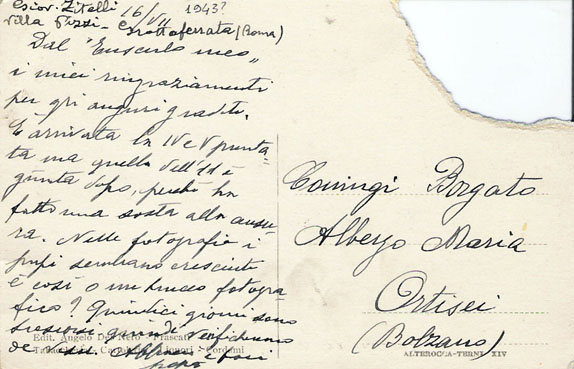 Giov. Zitelli 16/VII 1943?
Villa Pizzi - Grottaferrata (Roma)
Dal "Tuscolo meo"
i miei ringraziamenti
per gli auguri graditi.
È arrivata la IV e V punta=
ta ma quella dell'11 è
giunta dopo, perché ha
fatto una sosta alla censu=
ra. Nelle fotografie i
pupi sembrano cresciuti
è così o un trucco fotogra
fico? Quindici giorni sono
Coniugi Borgato
Albergo Maria
Ortisei
(Bolzano)
Edit. Angelo Del Nero - Frascati
ALTEROCCA-TERNI XIV